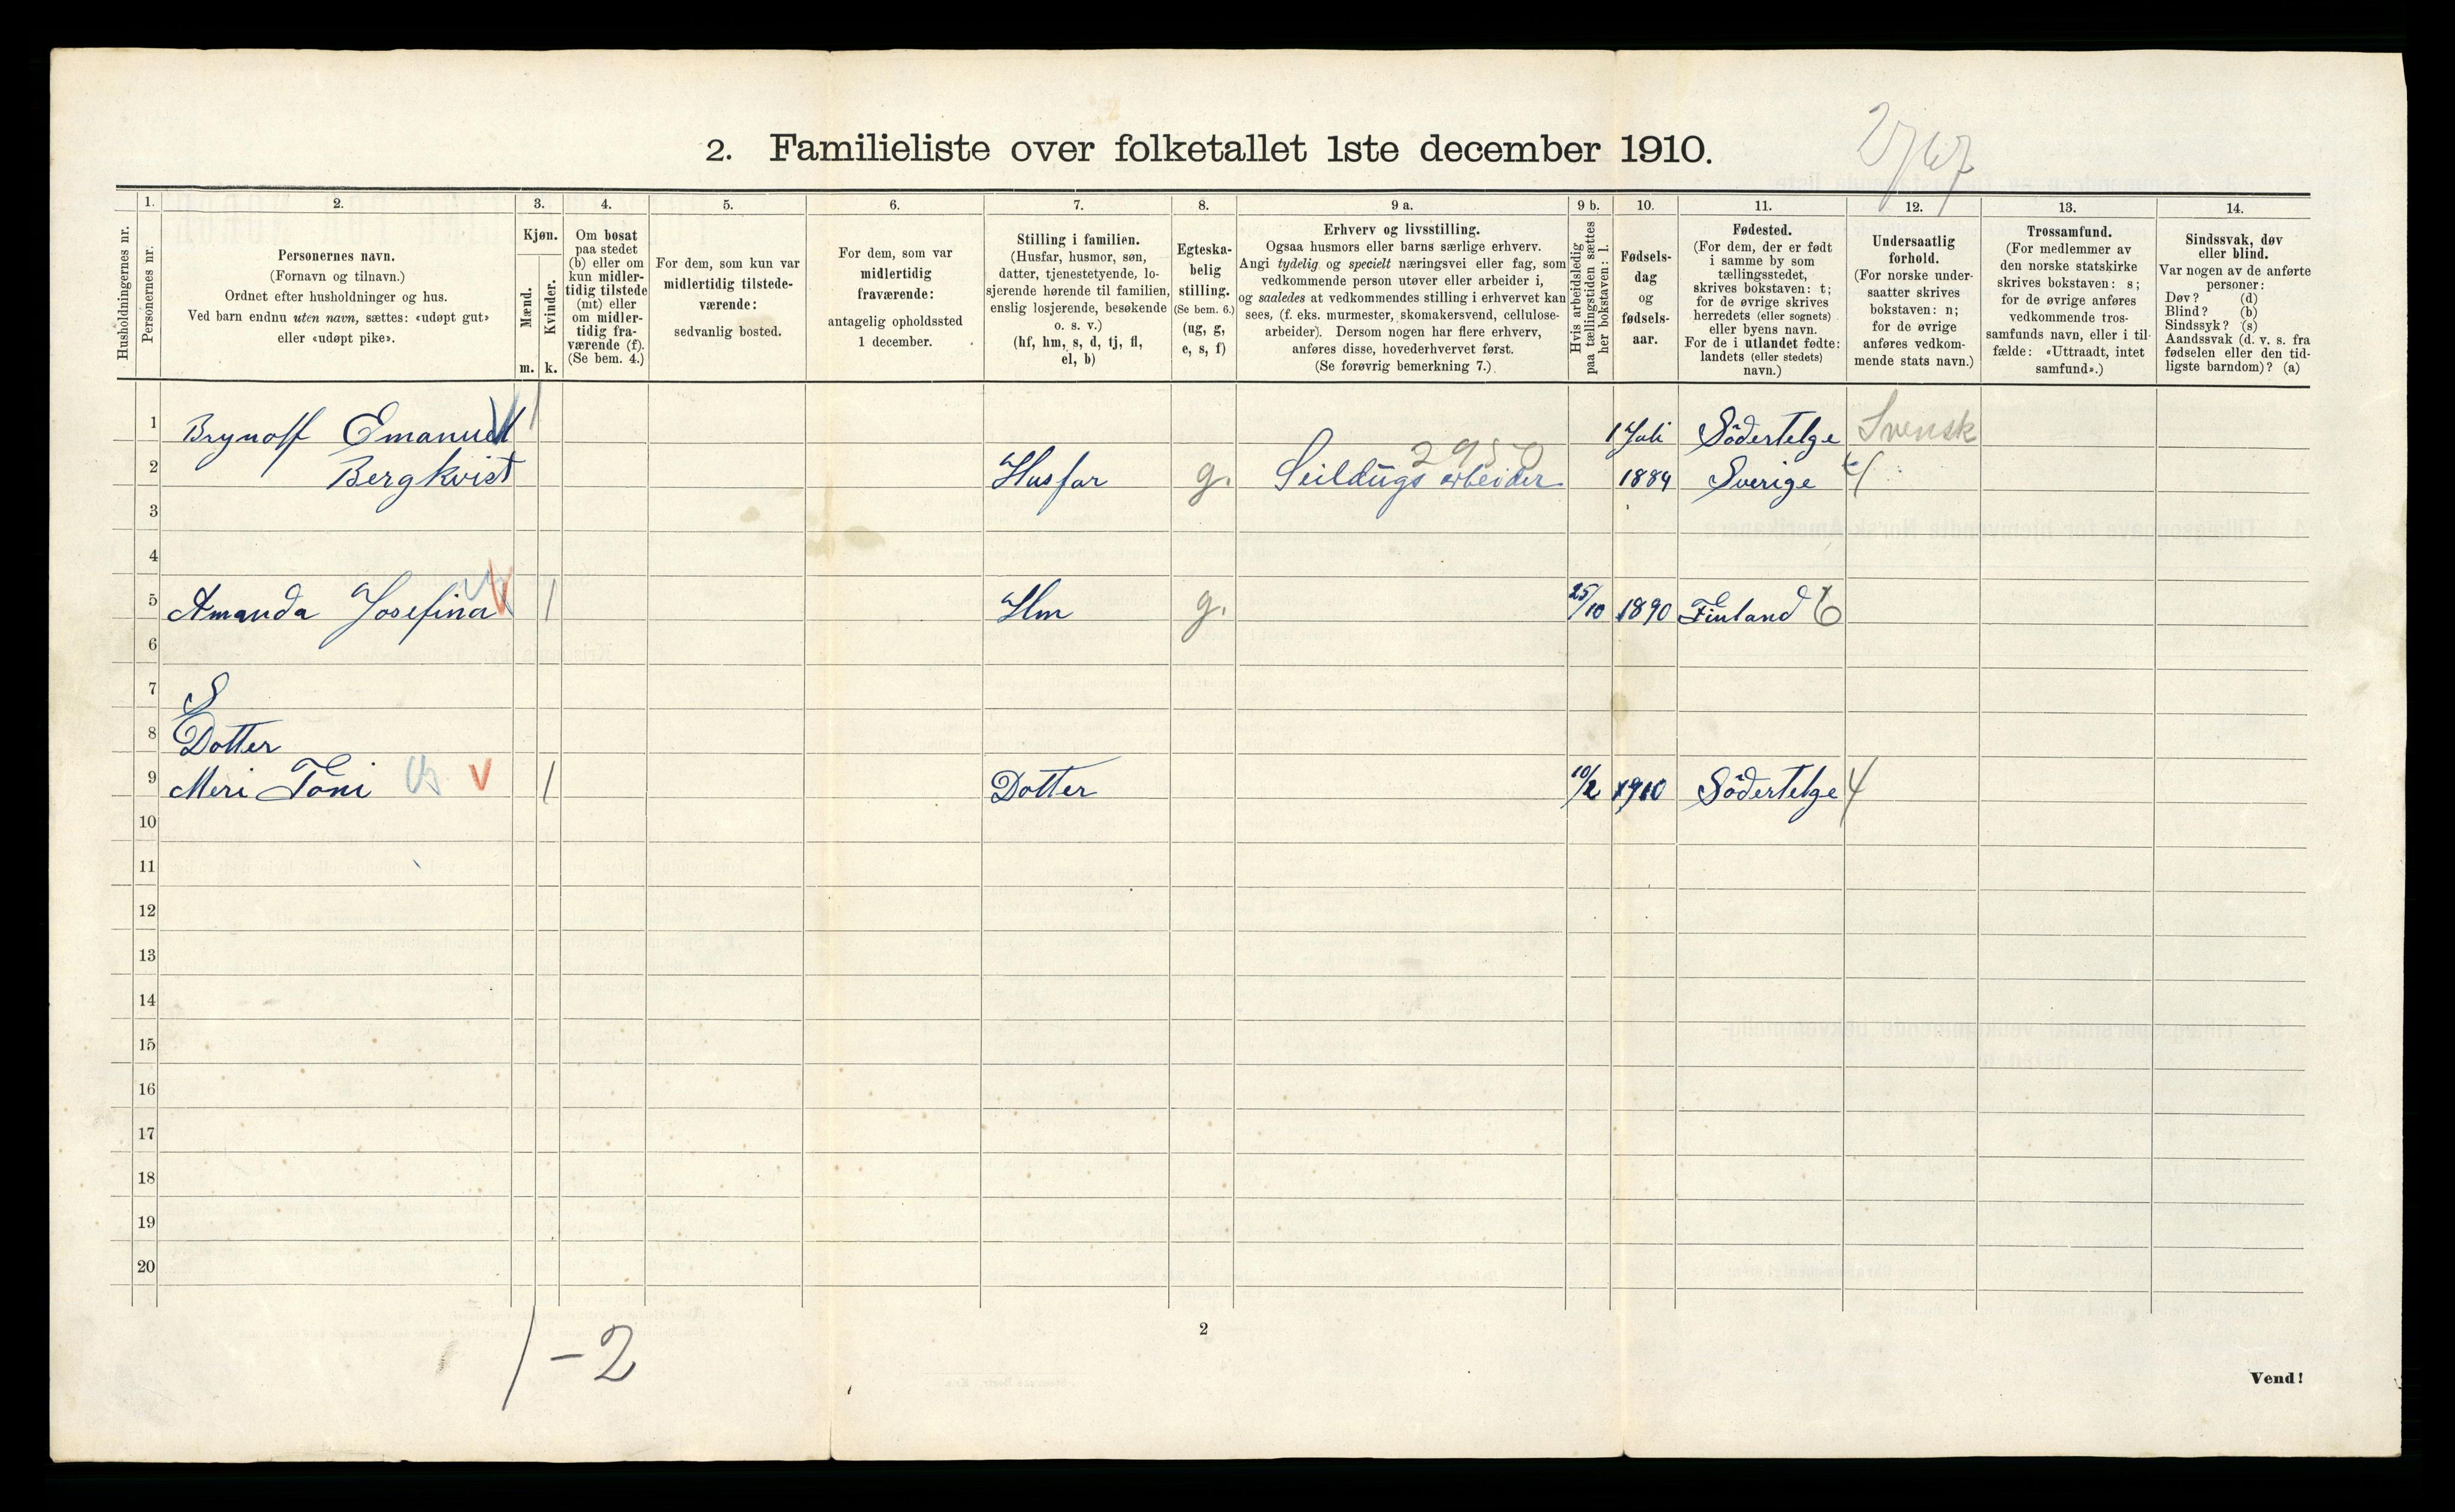 2. Familieliste over folketallet 1ste december 1910.
Husholdningernes nr.
1.
Personernes nr.
2.
Personernes navn.
(Fornavn og tilnavn.)
Ordnet efter husholdninger og hus.
Ved barn endnu uten navn, sættes: «udøpt gut»
eller «udøpt pike».
3.
Kjøn.
Mænd.
Kvinder.
m. k.
4.
Om bosat
paa stedet
(b) eller om
kun midler-
tidig tilstede
(mt) eller
om midler-
tidig fra-
værende (f).
(Se bem. 4.)
5.
For dem, som kun var
midlertidig tilstede-
værende:
sedvanlig bosted.
6.
For dem, som var
midlertidig
fraværende:
antagelig opholdssted
1 december.
7.
Stilling i familien.
(Husfar, husmor, søn,
datter, tjenestetyende, lo-
sjerende hørende til familien,
enslig losjerende, besøkende
o. s. v.)
(hf, hm, s, d, tj, fl,
el, b)
8.
Egteska-
belig
stilling.
(Se bem. 6.)
(ug, g,
e, s, f)
9 a.
Erhverv og livsstilling.
Ogsaa husmors eller barns særlige erhverv.
Angi tydelig og specielt næringsvei eller fag, som
vedkommende person utøver eller arbeider i,
og saaledes at vedkommendes stilling i erhvervet kan
sees, (f. eks. murmester, skomakersvend, cellulose-
arbeider). Dersom nogen har flere erhverv,
anføres disse, hovederhvervet først.
(Se forøvrig bemerkning 7.)
9 b.
Hvis arbeidsledig
paa tællingstiden sættes
her bokstaven: l.
10.
Fødsels-
dag
og
fødsels-
aar.
11.
Fødested.
(For dem, der er født
i samme by som
tællingsstedet,
skrives bokstaven: t;
for de øvrige skrives
herredets (eller sognets)
eller byens navn.
For de i utlandet fødte:
landets (eller stedets)
navn.)
12.
Undersaatlig
forhold.
(For norske under-
saatter skrives
bokstaven: n;
for de øvrige
anføres vedkom-
mende stats navn.)
13.
Trossamfund.
(For medlemmer av
den norske statskirke
skrives bokstaven: s;
for de øvrige anføres
vedkommende tros-
samfunds navn, eller i til-
fælde: «Uttraadt, intet
samfund».)
14.
Sindssvak, døv
eller blind.
Var nogen av de anførte
personer:
Døv? (d)
Blind? (b)
Sindssyk? (s)
Aandssvak (d. v. s. fra
fødselen eller den tid-
ligste barndom)? (a)
1 Brynolf Emanuel 1 1 Juli Södertelge Svensk
2 Bergkvist Husfar g. 2950 Seildugs arbeider 1884 Sverige 4
3
4
5 Amanda Josefina 1 Hm g. 25/10 1890 Finland 6
6
7 S
8 Dotter
9 Meri Toni v 1 Dotter 10/2 1910 Södertelge 4
10
11
12
13
14
15
16
17
18
19
20
1 - 2
2
Vend!